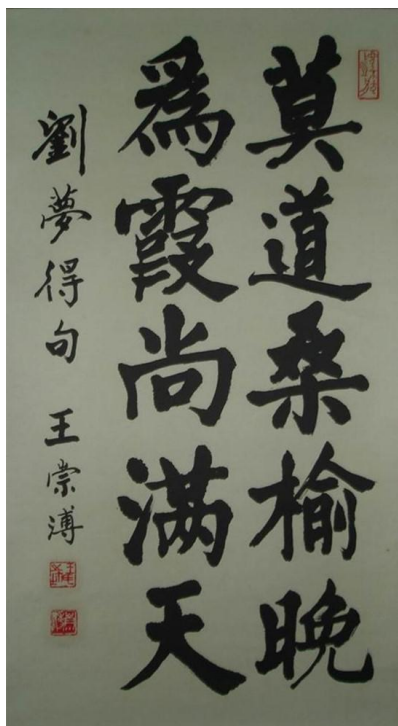 莫道桑榆晚
為霞尚滿天
劉夢得句 王崇溥